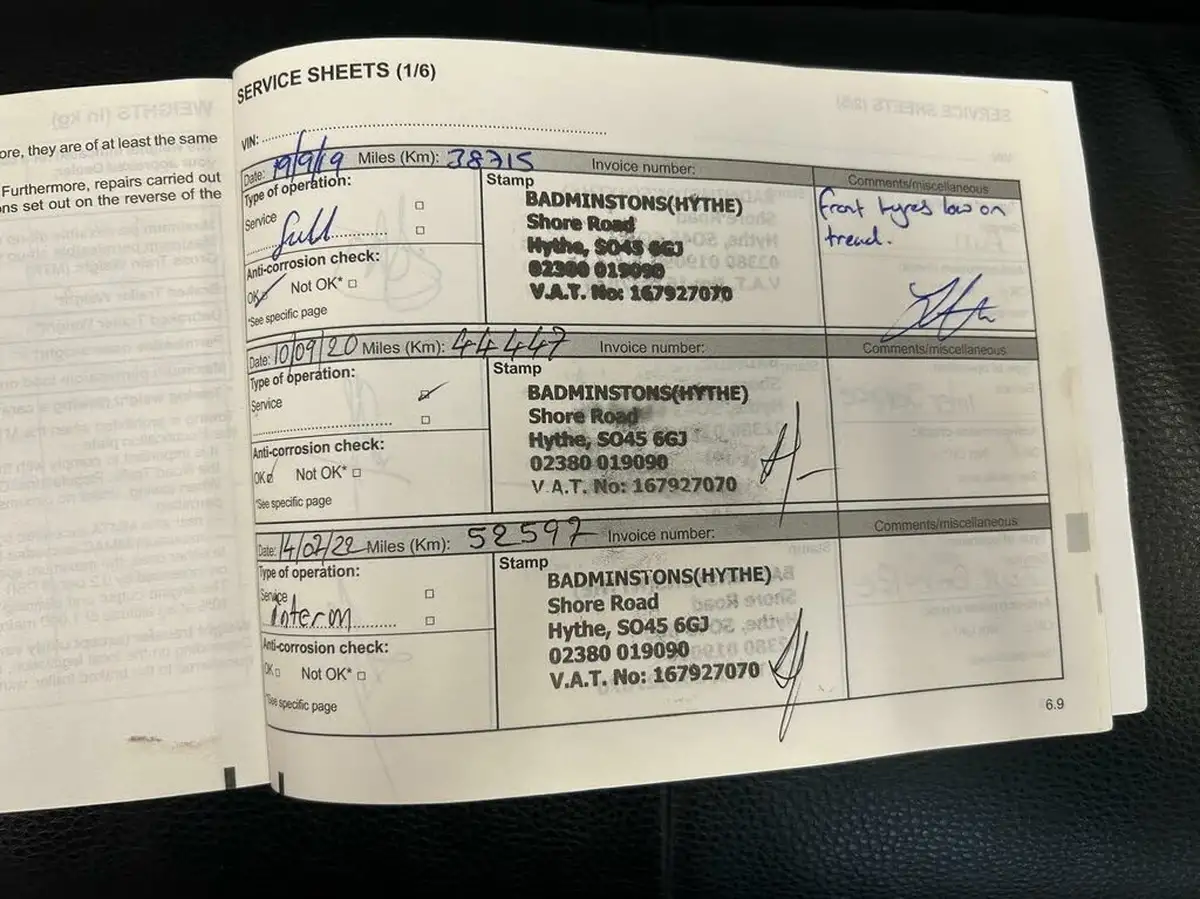 ore, they are of at least the same
Furthermore, repairs carried out
ns set out on the reverse of the
SERVICE SHEETS (1/6)
VIN:
Date: 19/9/19 Miles (Km): 38715 Invoice number:
Type of operation:
Service
full
Anti-corrosion check:
OK Not OK*
*See specific page
Stamp
BADMINSTONS(HYTHE)
Shore Road
Hythe, SO45 6GJ
02380 019090
V.A.T. No: 167927070
Comments/miscellaneous
front tyres low on
tread.
Date: 10/09/20 Miles (Km): 44447 Invoice number:
Type of operation:
Service
Anti-corrosion check:
OK Not OK*
*See specific page
Stamp
BADMINSTONS(HYTHE)
Shore Road
Hythe, SO45 6GJ
02380 019090
V.A.T. No: 167927070
Comments/miscellaneous
Date: 14/02/22 Miles (Km): 52597 Invoice number:
Type of operation:
Service
interm
Anti-corrosion check:
OK Not OK*
*See specific page
Stamp
BADMINSTONS(HYTHE)
Shore Road
Hythe, SO45 6GJ
02380 019090
V.A.T. No: 167927070
Comments/miscellaneous
6.9